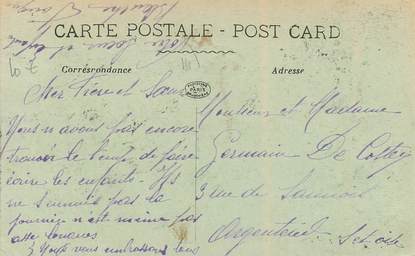 CARTE POSTALE - POST CARD
Corréspondance
Adresse
Cher Frère et Sœur
Nous n avons pas encore
trouvér le temp de faire
écrire les enfants. Ils
ne s'ennuis pas la
journée n'est même pas
asse longues
Nous vous embrassons tous
Monsieur et Madame
Germain De
3 rue de Sannois
Argenteuil
Set-oise